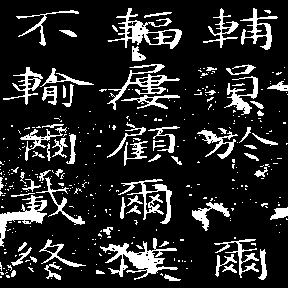 輔員於爾
輻屢顧爾僕
不輸爾載終